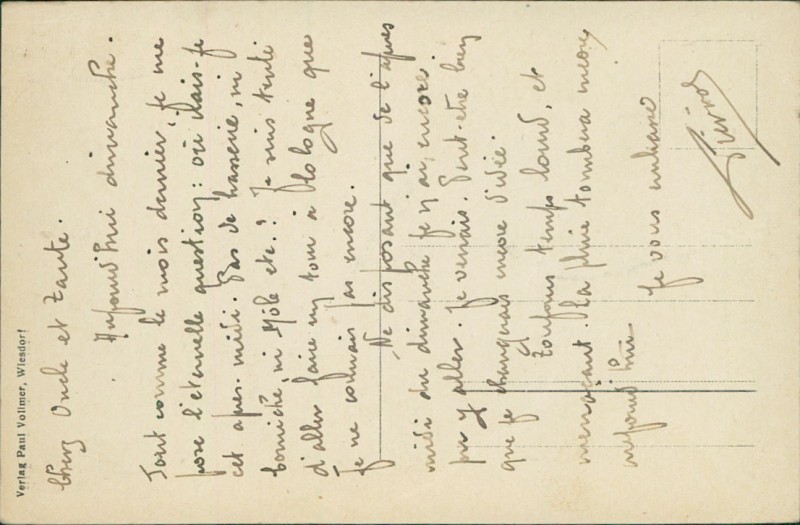 Verlag Paul Vollmer, Wiesdorf
Chers Oncle et tante.
Aujourd'hui dimanche.
Tout comme le mois dernier, je me
pose l'éternelle question : où irais-je
cet après-midi. Pas de ni
ni Môle etc.! Je suis tenté
d'aller faire un tour à Cologne que
je ne connais pas encore.
Ne disposant que de l'après
midi du dimanche je n'ai encore
pu y aller. Je verrais. Peut-être bien
que je changerais encore d'idée.
Toujours temps lourd, et
menaçant. La pluie tombera encore
aujourd'hui
Je vous embrasse